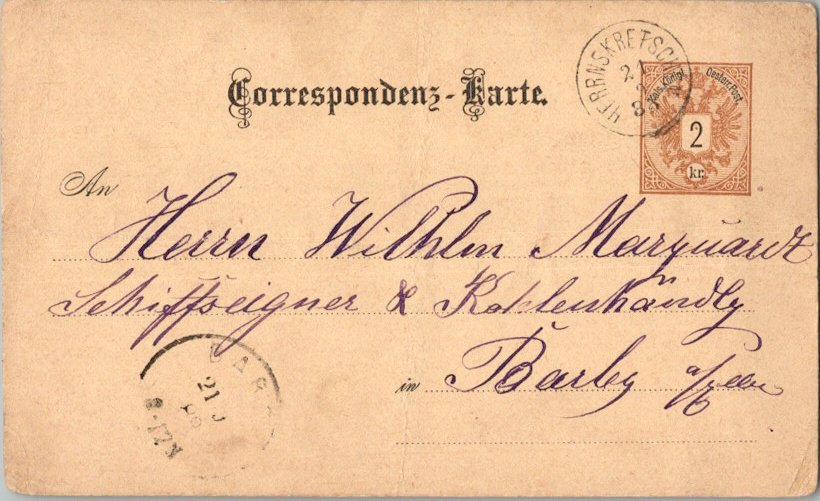 Correspondenz-Karte.
HERRNSKRETSCH
21
Kais. Königl. Oester. Post.
2
kr.
An
Herrn Wilhlm Marquardt
Schiffseigner & Kohlenhändlg
in Barby a/Elbe
BAR
21